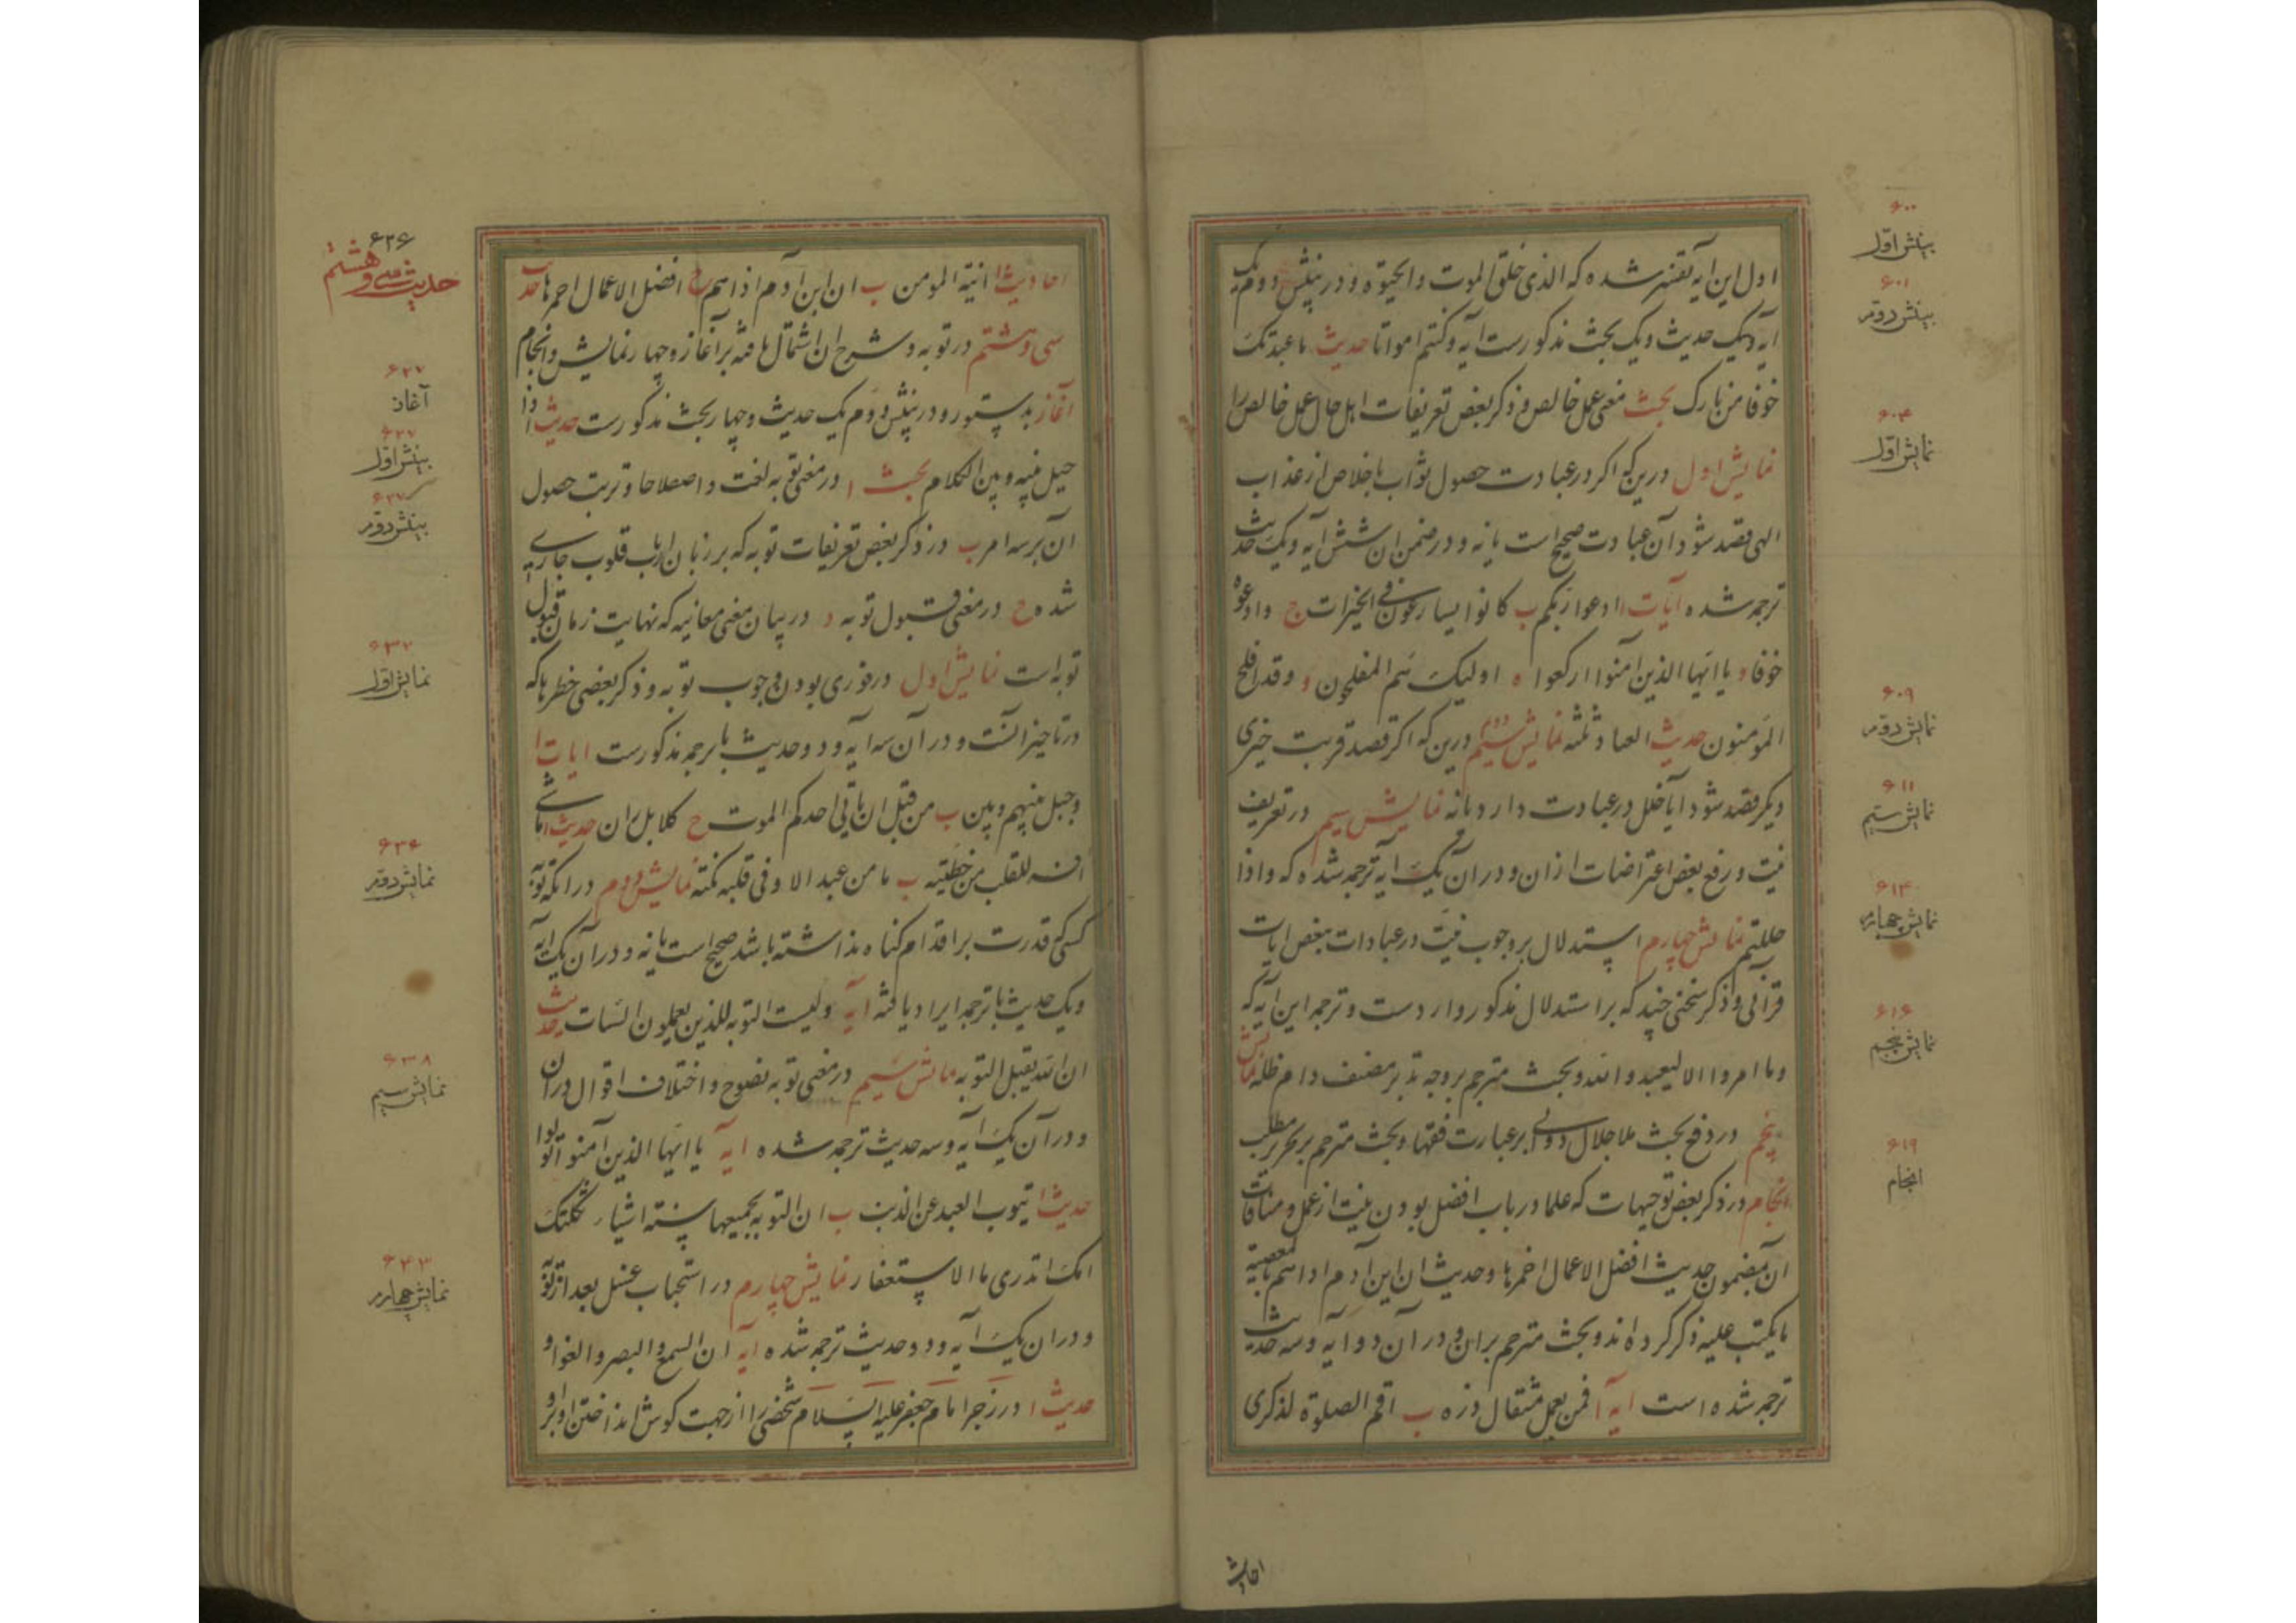 اول این ایه تفسیر شده که الذی خلق الموت والحیوة و در بینش دوم یک
ایه و یک حدیث و یک بحث مذکور است ایه وکنتم امواتا حدیث ما عبدتک
خوفا من نارک بحث معنی عمل خالص و ذکر بعض تعریفات اهل حال عمل خالص را
نمایش اول درین که اکر در عبادت حصول ثواب یا خلاص از عذاب
الهی قصد شود آن عبادت صحیح است یا نه و در ضمن ان شش ایه و یک حدیث
ترجمه شده آیات ا ادعوا ربکم ب کانوا یسارعون فی الخیرات ج وادعوه
خوفا د یا ایها الذین امنوا ارکعوا ه اولیک هم المفلحون و وقد افلح
المومنون حدیث العباد ثلثه نمایش دوم درین که اکر قصد قربت خیری
دیکر قصد شود ایا خلل در عبادت دارد یا نه نمایش سیم در تعریف
نیت و رفع بعض اعتراضات از ان و در آن یک ایه ترجمه شده که واذا
حللتم نمایش چهارم استدلال بر وجوب نیت در عبادات ببعض ایات
قرآنی و ذکر سخنی چند که بر استدلال مذکور وارد است و ترجمه این آیه که
وما امروا الا لیعبدوا الله و بحث مترجم بر وجه تدبر مصنف دام ظله نمایش
پنجم در دفع بحث ملا جلال دوانی بر عبارت فقها و بحث مترجم بر تحریر مطلب
انجام در ذکر بعض توجیهات که علما در باب افضل بودن نیت از عمل و منافات
آن بمضمون حدیث افضل الاعمال احمزها و حدیث ان ابن آدم اذا هم بالمعصیة
ما یکتب علیه ذکر کرده اند و بحث مترجم بران و در آن دو ایه و سه حدیث
ترجمه شده است ایه آ فمن یعمل مثقال ذره ب اقم الصلوة لذکری
احادیث
۶۰۰
بینش اول
۶۰۱
بینش دوم
۶۰۴
نمایش اول
۶۰۹
نمایش دوم
۶۱۱
نمایش سیم
۶۱۴
نمایش چهارم
۶۱۶
نمایش پنجم
۶۱۹
انجام
احادیث ا نیة المومن ب ان ابن آدم اذا هم ج افضل الاعمال احمزها حدیث
سی و هشتم در توبه و شرح ان اشتمال یافته بر آغاز و چهار نمایش و انجام
آغاز بدستور و در بینش دوم یک حدیث و چهار بحث مذکور است حدیث اذا
حیل بینه و بین الکلام بحث ا در معنی توبه لغت و اصطلاحا و ترتب حصول
آن بر سه امر ب در ذکر بعض تعریفات توبه که بر زبان ارباب قلوب جاری
شده ج در معنی قبول توبه د در بیان معنی معاینه که نهایت زمان قبول
توبه است نمایش اول در فوری بودن وجوب توبه و ذکر بعضی خطرها که
در تاخیر آنست و در آن سه ایه و دو حدیث با ترجمه مذکور است ایات ا
وحیل بینهم وبین ب من قبل ان یاتی احدکم الموت ج کلا بل ران حدیث ا ما شی
افسد للقلب من خطیئته ب ما من عبد الا وفی قلبه نکتة نمایش دوم در انکه توبه
کسی که قدرت بر اقدام کناه نداشته باشد صحیح است یا نه و در آن یک ایه
و یک حدیث با ترجمه ایراد یافته ایه ولیست التوبه للذین یعملون السیات حدیث
ان الله یقبل التوبه نمایش سیم در معنی توبه نصوح و اختلاف اقوال در ان
و در آن یک ایه و سه حدیث ترجمه شده ایه یا ایها الذین آمنوا توبوا
حدیث ا یتوب العبد عن الذنب ب ان التوبه یجمعها سته اشیاء ثکلتک
امک اتدری ما الاستغفار نمایش چهارم در استحباب غسل بعد از توبه
و در ان یک ایه و دو حدیث ترجمه شده ایه ان السمع والبصر والفواد
حدیث ا در زجر امام جعفر علیه السلام شخصی را از جهت کوش انداختن او بر
۶۲۶
حدیث سی و هشتم
۶۲۷
آغاز
۶۲۷
بینش اول
۶۲۷
بینش دوم
۶۳۲
نمایش اول
۶۳۶
نمایش دوم
۶۳۸
نمایش سیم
۶۴۳
نمایش چهارم